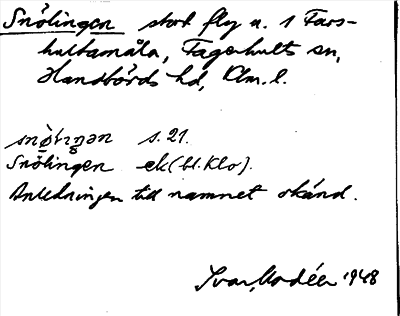 Snölingen stort fly n. i Fars-
hultamåla, Fagerhults sn,
Handbörds hd, Klm.l.
s. 21.
Snölingen ek (bl. Klo).
Anledningen till namnet okänd.
Ivar Modéer 1948